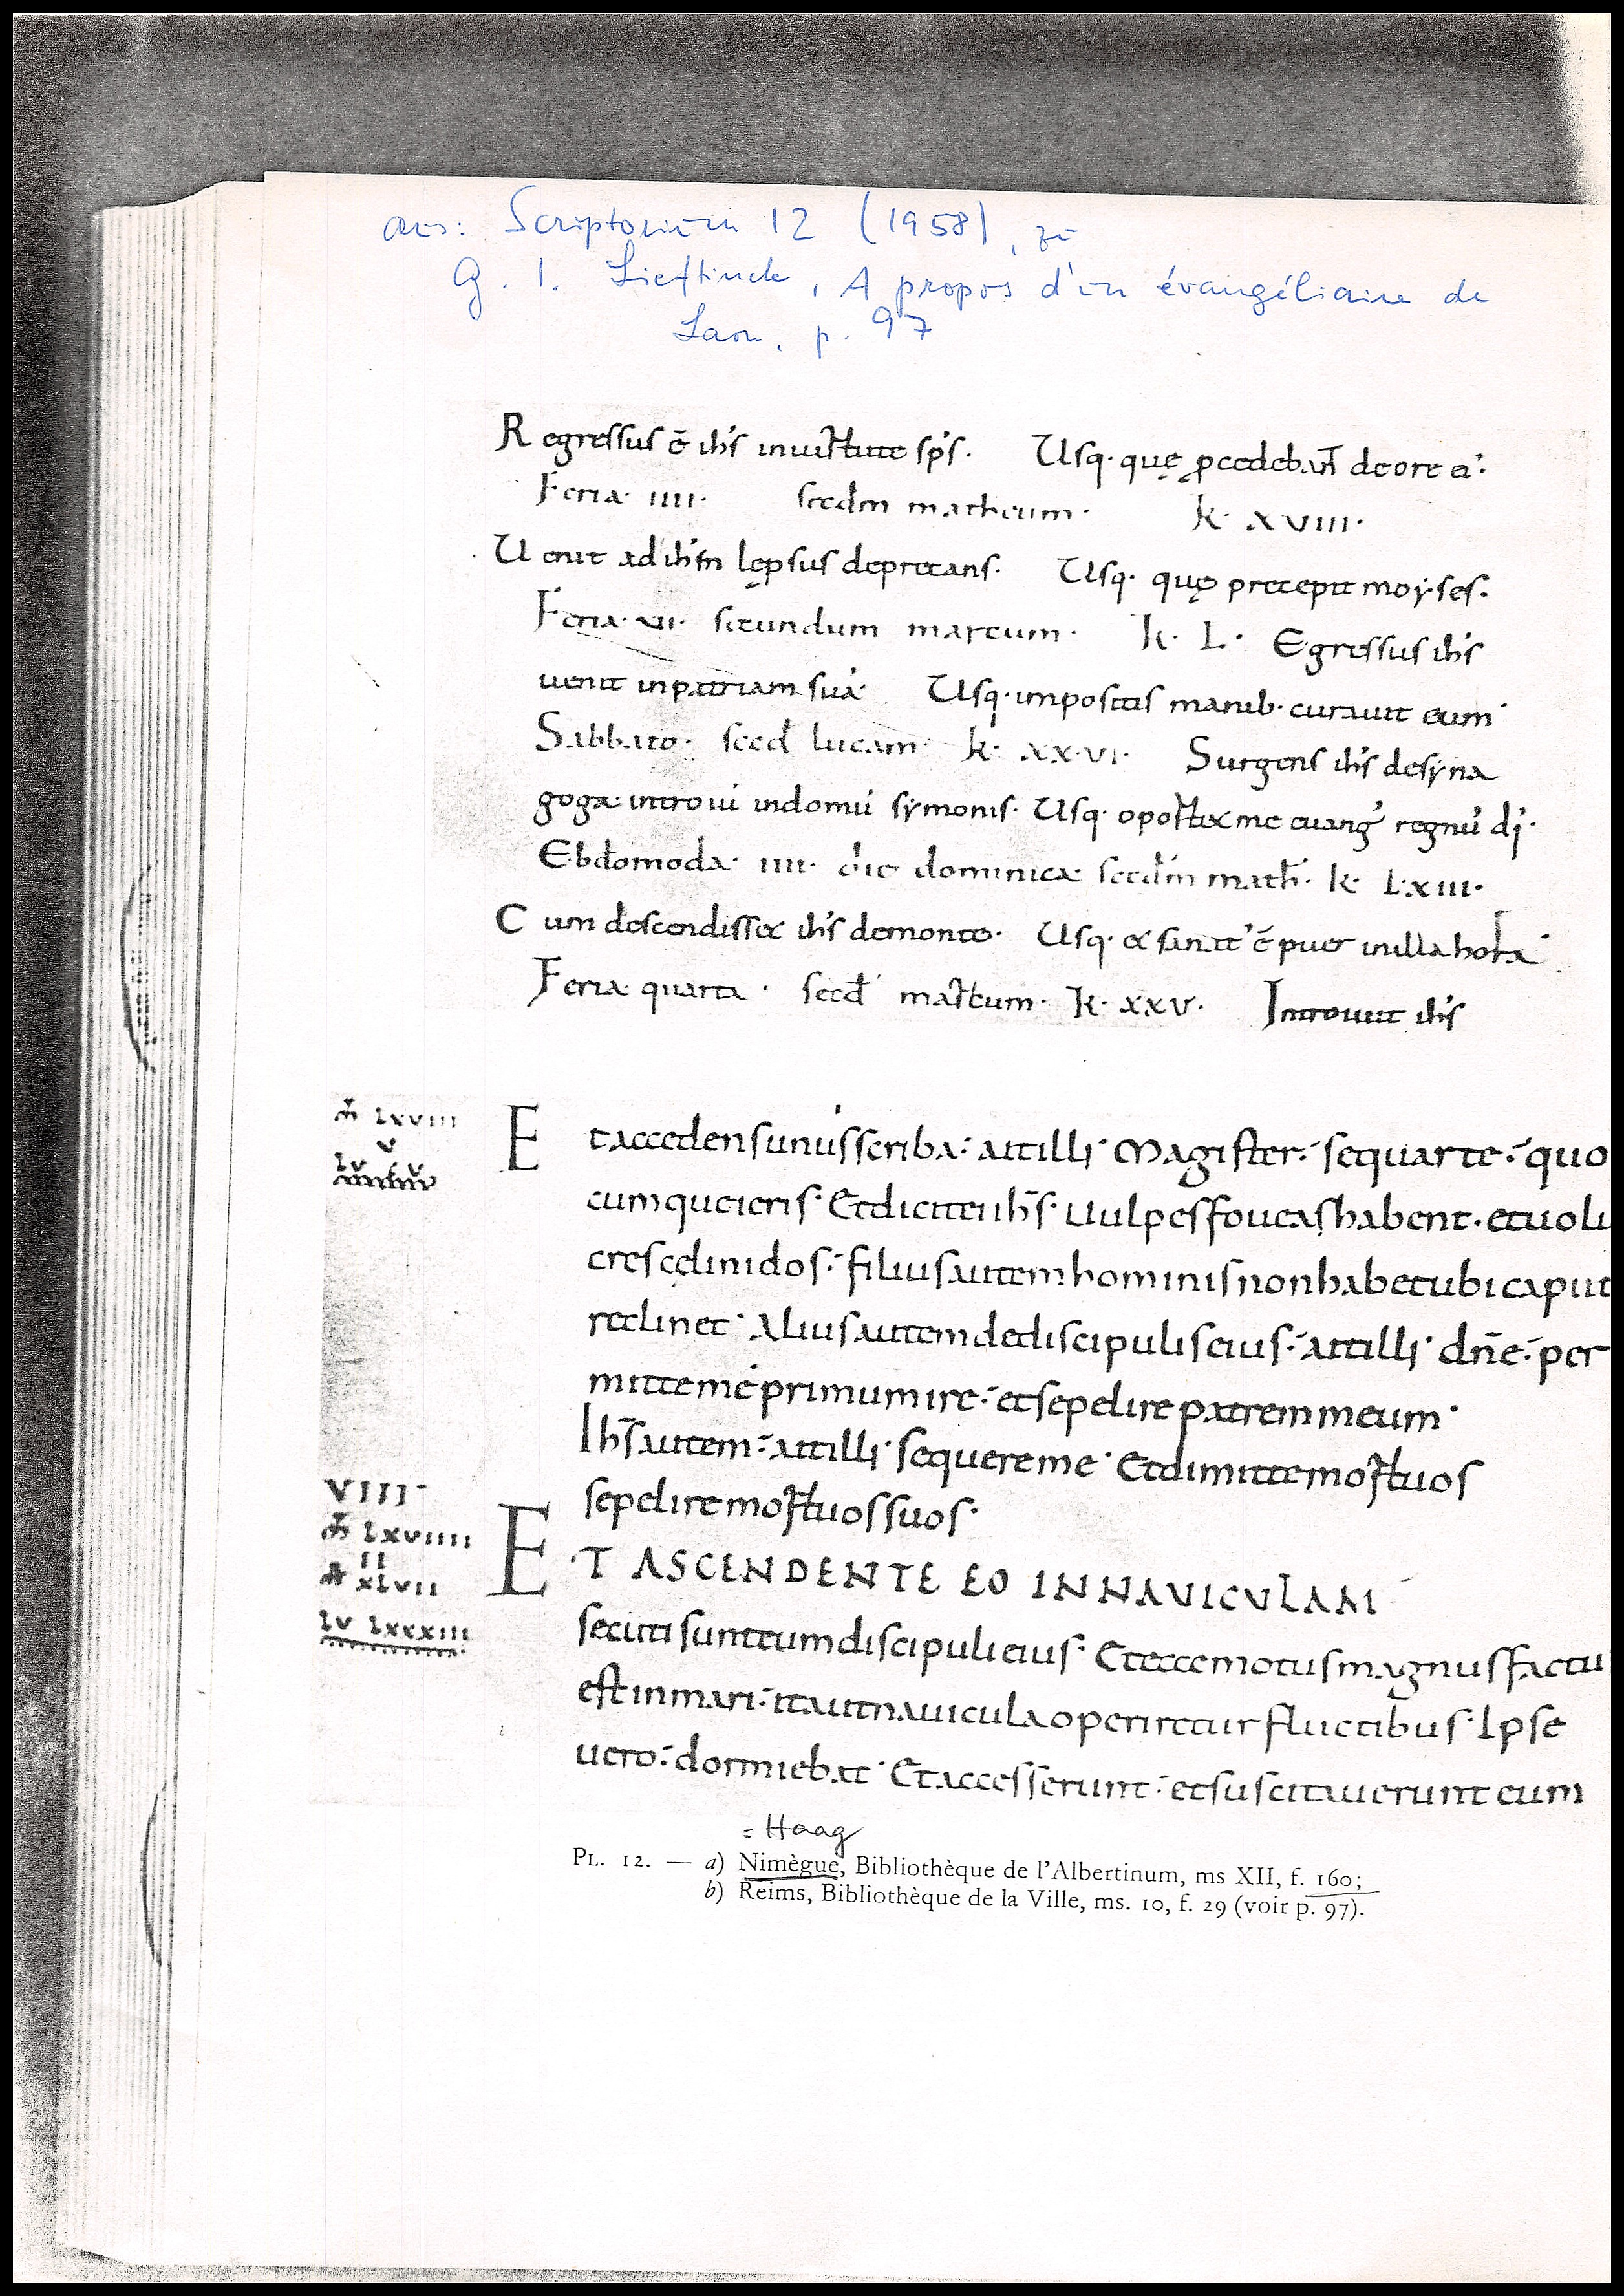 aus: Scriptorium 12 (1958), zu
G. I. Lieftinck, A propos d'un évangéliaire de
Laon, p. 97
Regressus ē ihs̄ inuirtute sp̄s. Usq. quę p̱cedebant̄ deore ei'.
Feria. IIII. secdm̄ matheum. K. XVIII.
Uenit ad ihm̄ lęp̱sus deprecans. Usq. quę precepit moẏses.
Feria. VI. secundum marcum. K. L. Egressus ihs̄
uenit inpatriam suā. Usq. impositis manib. curauit eum.
Sabbato. secd̄ lucam. K. XXVI. Surgens ihs̄ desẏna
goga introiui indomū sẏmonis. Usq. oportet me euanḡ regnū dī.
Ebdomoda. IIII. die dominica secdm̄ math̄. K. LXIII.
Cum descendisset ihs̄ demonte. Usq. et sanat' ē puer inilla hora.
Feria quarta. secd̄ martum. K. XXV. Introiuit ihs̄
LXVIII
V
LV V
Et accedensunusscriba. aitilli. Magister. sequarte. quo
cumqueieris. Etdiciteiihs̄. Uulpesfoueashabent. etuolu
crescęlinidos. filiusautemhominisnonhabetubicaput
reclinet. Aliusautemdediscipuliseius. aitilli. dn̄e. per
mittemeprimumire. etsepelirepatremmeum.
Ihs̄autem. aitilli. sequereme. Etdimittemortuos
sepeliremortuossuos.
VIII
LXVIIII
II
XLVII
LV LXXXIII
ET ASCENDENTE EO INNAUICULAM
secutisunteumdiscipulieius. Eteccemotusmagnusfactu
estinmari. itautnauiculaoperireturfluctibus. Ipse
uero. dormiebat. Etaccesserunt. etsuscitauerunteum
= Haag
PL. 12. — a) Nimègue, Bibliothèque de l'Albertinum, ms XII, f. 160;
b) Reims, Bibliothèque de la Ville, ms. 10, f. 29 (voir p. 97).